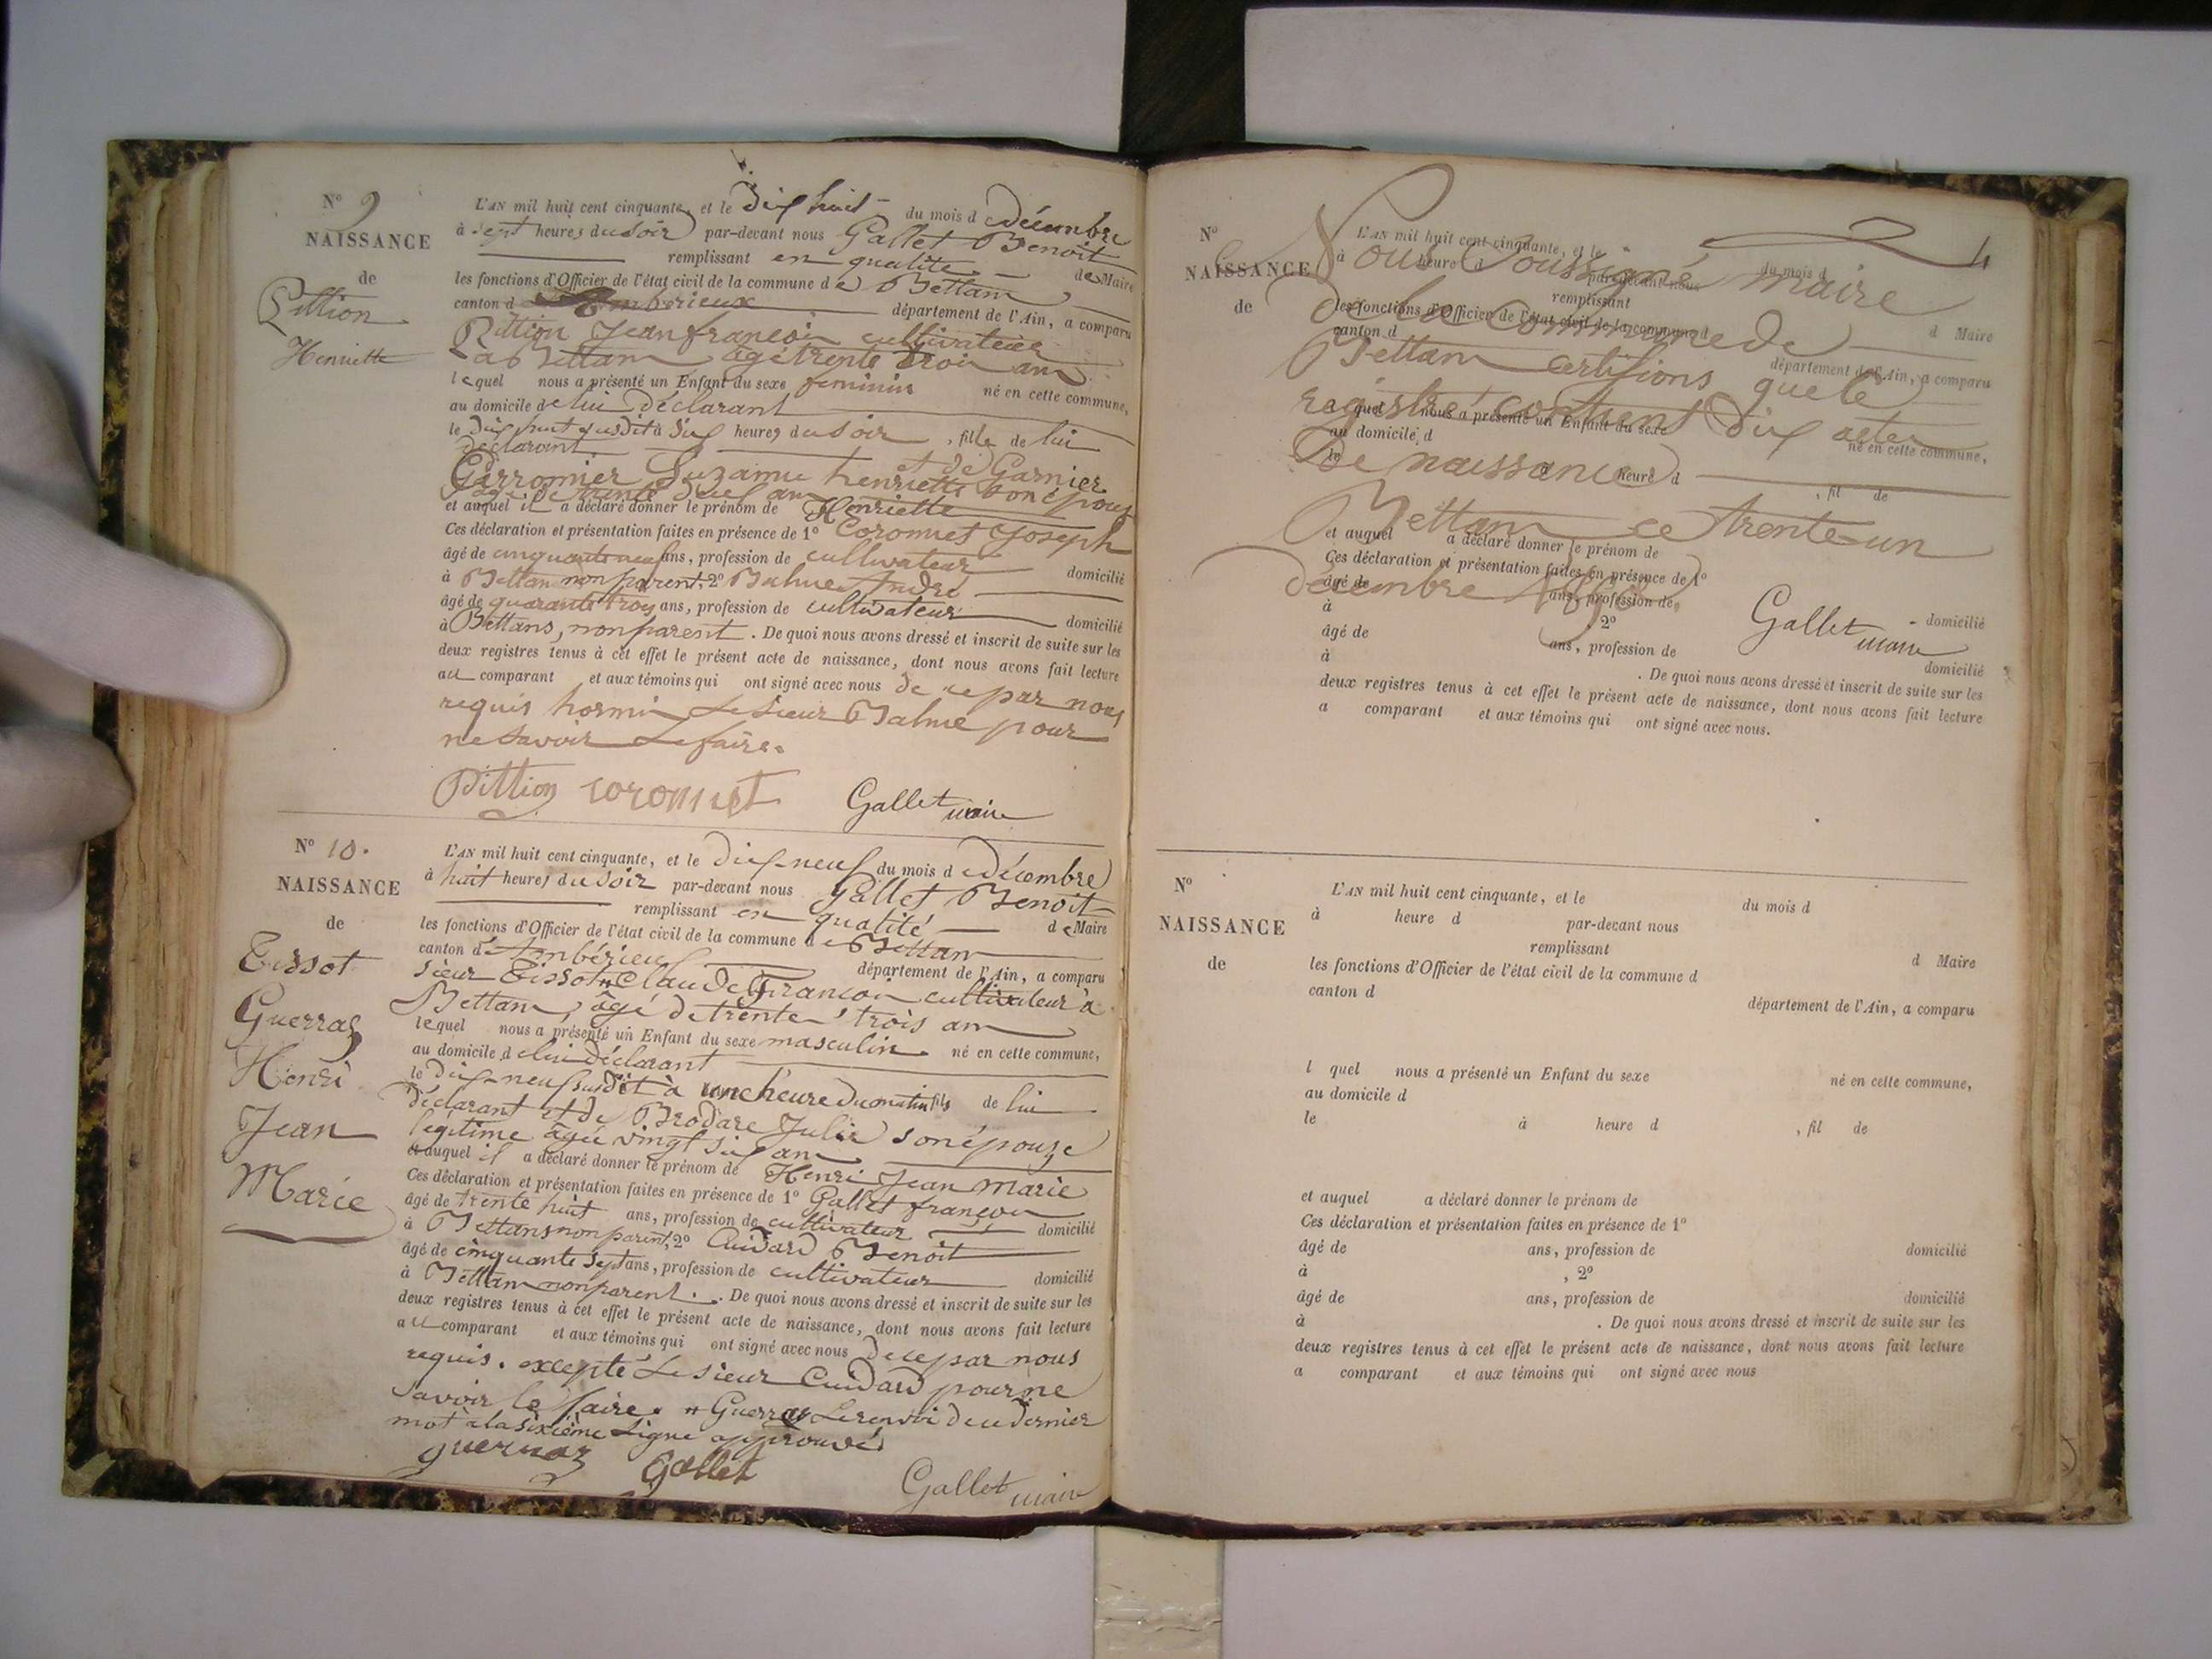 N° 9
NAISSANCE
de
Pittion
Henriette
L'AN mil huit cent cinquante, et le Dix huit du mois d e Décembre
à sept heures du soir par-devant nous Gallet Benoit
remplissant en qualité de Maire
les fonctions d'Officier de l'état civil de la commune d e Bettans
canton d Ambérieux département de l'Ain, a comparu
Pittion Jean françois cultivateur
à Bettans âgé trente trois ans
lequel nous a présenté un Enfant du sexe feminin né en cette commune,
au domicile de lui déclarant
le Dix huit susdit à six heures du soir, fille de lui
déclarant et de Garnier
Suzanne henriette son épouse
âgée de trente ans
et auquel il a déclaré donner le prénom de Henriette
Ces déclaration et présentation faites en présence de 1° Coronnet Joseph
âgé de cinquante neuf ans, profession de cultivateur domicilié
à Bettans non parent, 2° Balme André
âgé de quarante trois ans, profession de cultivateur domicilié
à Bettans, non parent. De quoi nous avons dressé et inscrit de suite sur les
deux registres tenus à cet effet le présent acte de naissance, dont nous avons fait lecture
au comparant et aux témoins qui ont signé avec nous de ce par nous
requis hormis le sieur Balme pour
ne savoir le faire.
Pittion coronnet Gallet maire
N° 10.
NAISSANCE
de
Tissot
Guerraz
Henri
Jean
Marie
L'AN mil huit cent cinquante, et le dix-neuf du mois d e décembre
à huit heures du soir par-devant nous Gallet Benoit
remplissant en qualité de Maire
les fonctions d'Officier de l'état civil de la commune d e Bettans
canton d'Ambérieux département de l'Ain, a comparu
sieur Tissot # Claude François cultivateur à
Bettans, âgé de trente trois ans
lequel nous a présenté un Enfant du sexe masculin né en cette commune,
au domicile de lui déclarant
le dix-neuf susdit à une heure du matin fils de lui
déclarant et de Brodare Julie son épouse
légitime âgée vingt six ans
et auquel il a déclaré donner le prénom de Henri Jean Marie
Ces déclaration et présentation faites en présence de 1° Gallet françois
âgé de trente huit ans, profession de cultivateur domicilié
à Bettans non parent, 2° Cuidard Benoit
âgé de cinquante sept ans, profession de cultivateur domicilié
à Bettans non parent. De quoi nous avons dressé et inscrit de suite sur les
deux registres tenus à cet effet le présent acte de naissance, dont nous avons fait lecture
au comparant et aux témoins qui ont signé avec nous de ce par nous
requis. excepté le sieur Cuidard pour ne
savoir le faire. # Guerraz Le renvoi du dernier
mot à la sixième ligne approuvé
guerraz Gallet Gallet maire
N°
NAISSANCE
de
L'AN mil huit cent cinquante, et le du mois d
à heure d par-devant nous
remplissant d Maire
les fonctions d'Officier de l'état civil de la commune d
canton d département de l'Ain, a comparu
l quel nous a présenté un Enfant du sexe né en cette commune,
au domicile d
le heure d , fil de
Nous Soussigné maire
de la Commune de
Bettans certifions que le
registre contient dix actes
de naissance
Bettans ce trente-un
décembre 1850
Gallet maire
et auquel a déclaré donner le prénom de
Ces déclaration et présentation faites en présence de 1°
âgé de ans, profession de domicilié
à 2°
âgé de ans, profession de domicilié
à . De quoi nous avons dressé et inscrit de suite sur les
deux registres tenus à cet effet le présent acte de naissance, dont nous avons fait lecture
a comparant et aux témoins qui ont signé avec nous.
N°
NAISSANCE
de
L'AN mil huit cent cinquante, et le du mois d
à heure d par-devant nous
remplissant d Maire
les fonctions d'Officier de l'état civil de la commune d
canton d département de l'Ain, a comparu
l quel nous a présenté un Enfant du sexe né en cette commune,
au domicile d
le à heure d , fil de
et auquel a déclaré donner le prénom de
Ces déclaration et présentation faites en présence de 1°
âgé de ans, profession de domicilié
à , 2°
âgé de ans, profession de domicilié
à . De quoi nous avons dressé et inscrit de suite sur les
deux registres tenus à cet effet le présent acte de naissance, dont nous avons fait lecture
a comparant et aux témoins qui ont signé avec nous